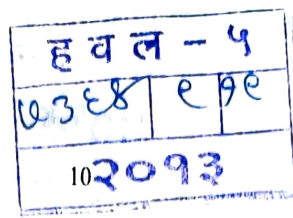 हवल - ५
७३६४ ९ १९
10२०१३